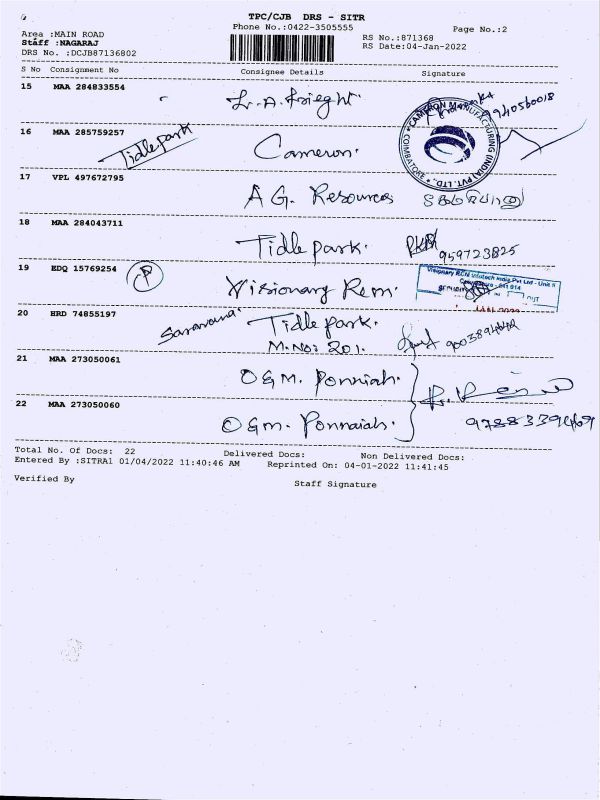 TPC/CJB DRS - SITR
Phone No.:0422-3505555
Page No.:2
Area :MAIN ROAD
Staff :NAGARAJ
DRS No. :DCJB87136802
RS No.:871368
RS Date:04-Jan-2022
S No Consignment No Consignee Details Signature
15 MAA 284833554
16 MAA 285759257 Tidle park Cameron.
CAMERON MANUFACTURING (INDIA) PVT. LTD.,
COIMBATORE
17 VPL 497672795 A G. Resources
18 MAA 284043711 Tidle park. 959723825
19 EDQ 15769254 P Visionary Rcm.
Visionary RCM Infotech India Pvt Ltd - Unit II
20 HRD 74855197 Saravana. Tidle park.
M.No: 201. 9003894642
21 MAA 273050061 O & M. Ponniah.
22 MAA 273050060 O & m. Ponnaiah.
Total No. Of Docs: 22 Delivered Docs: Non Delivered Docs:
Entered By :SITRA1 01/04/2022 11:40:46 AM Reprinted On: 04-01-2022 11:41:45
Verified By Staff Signature